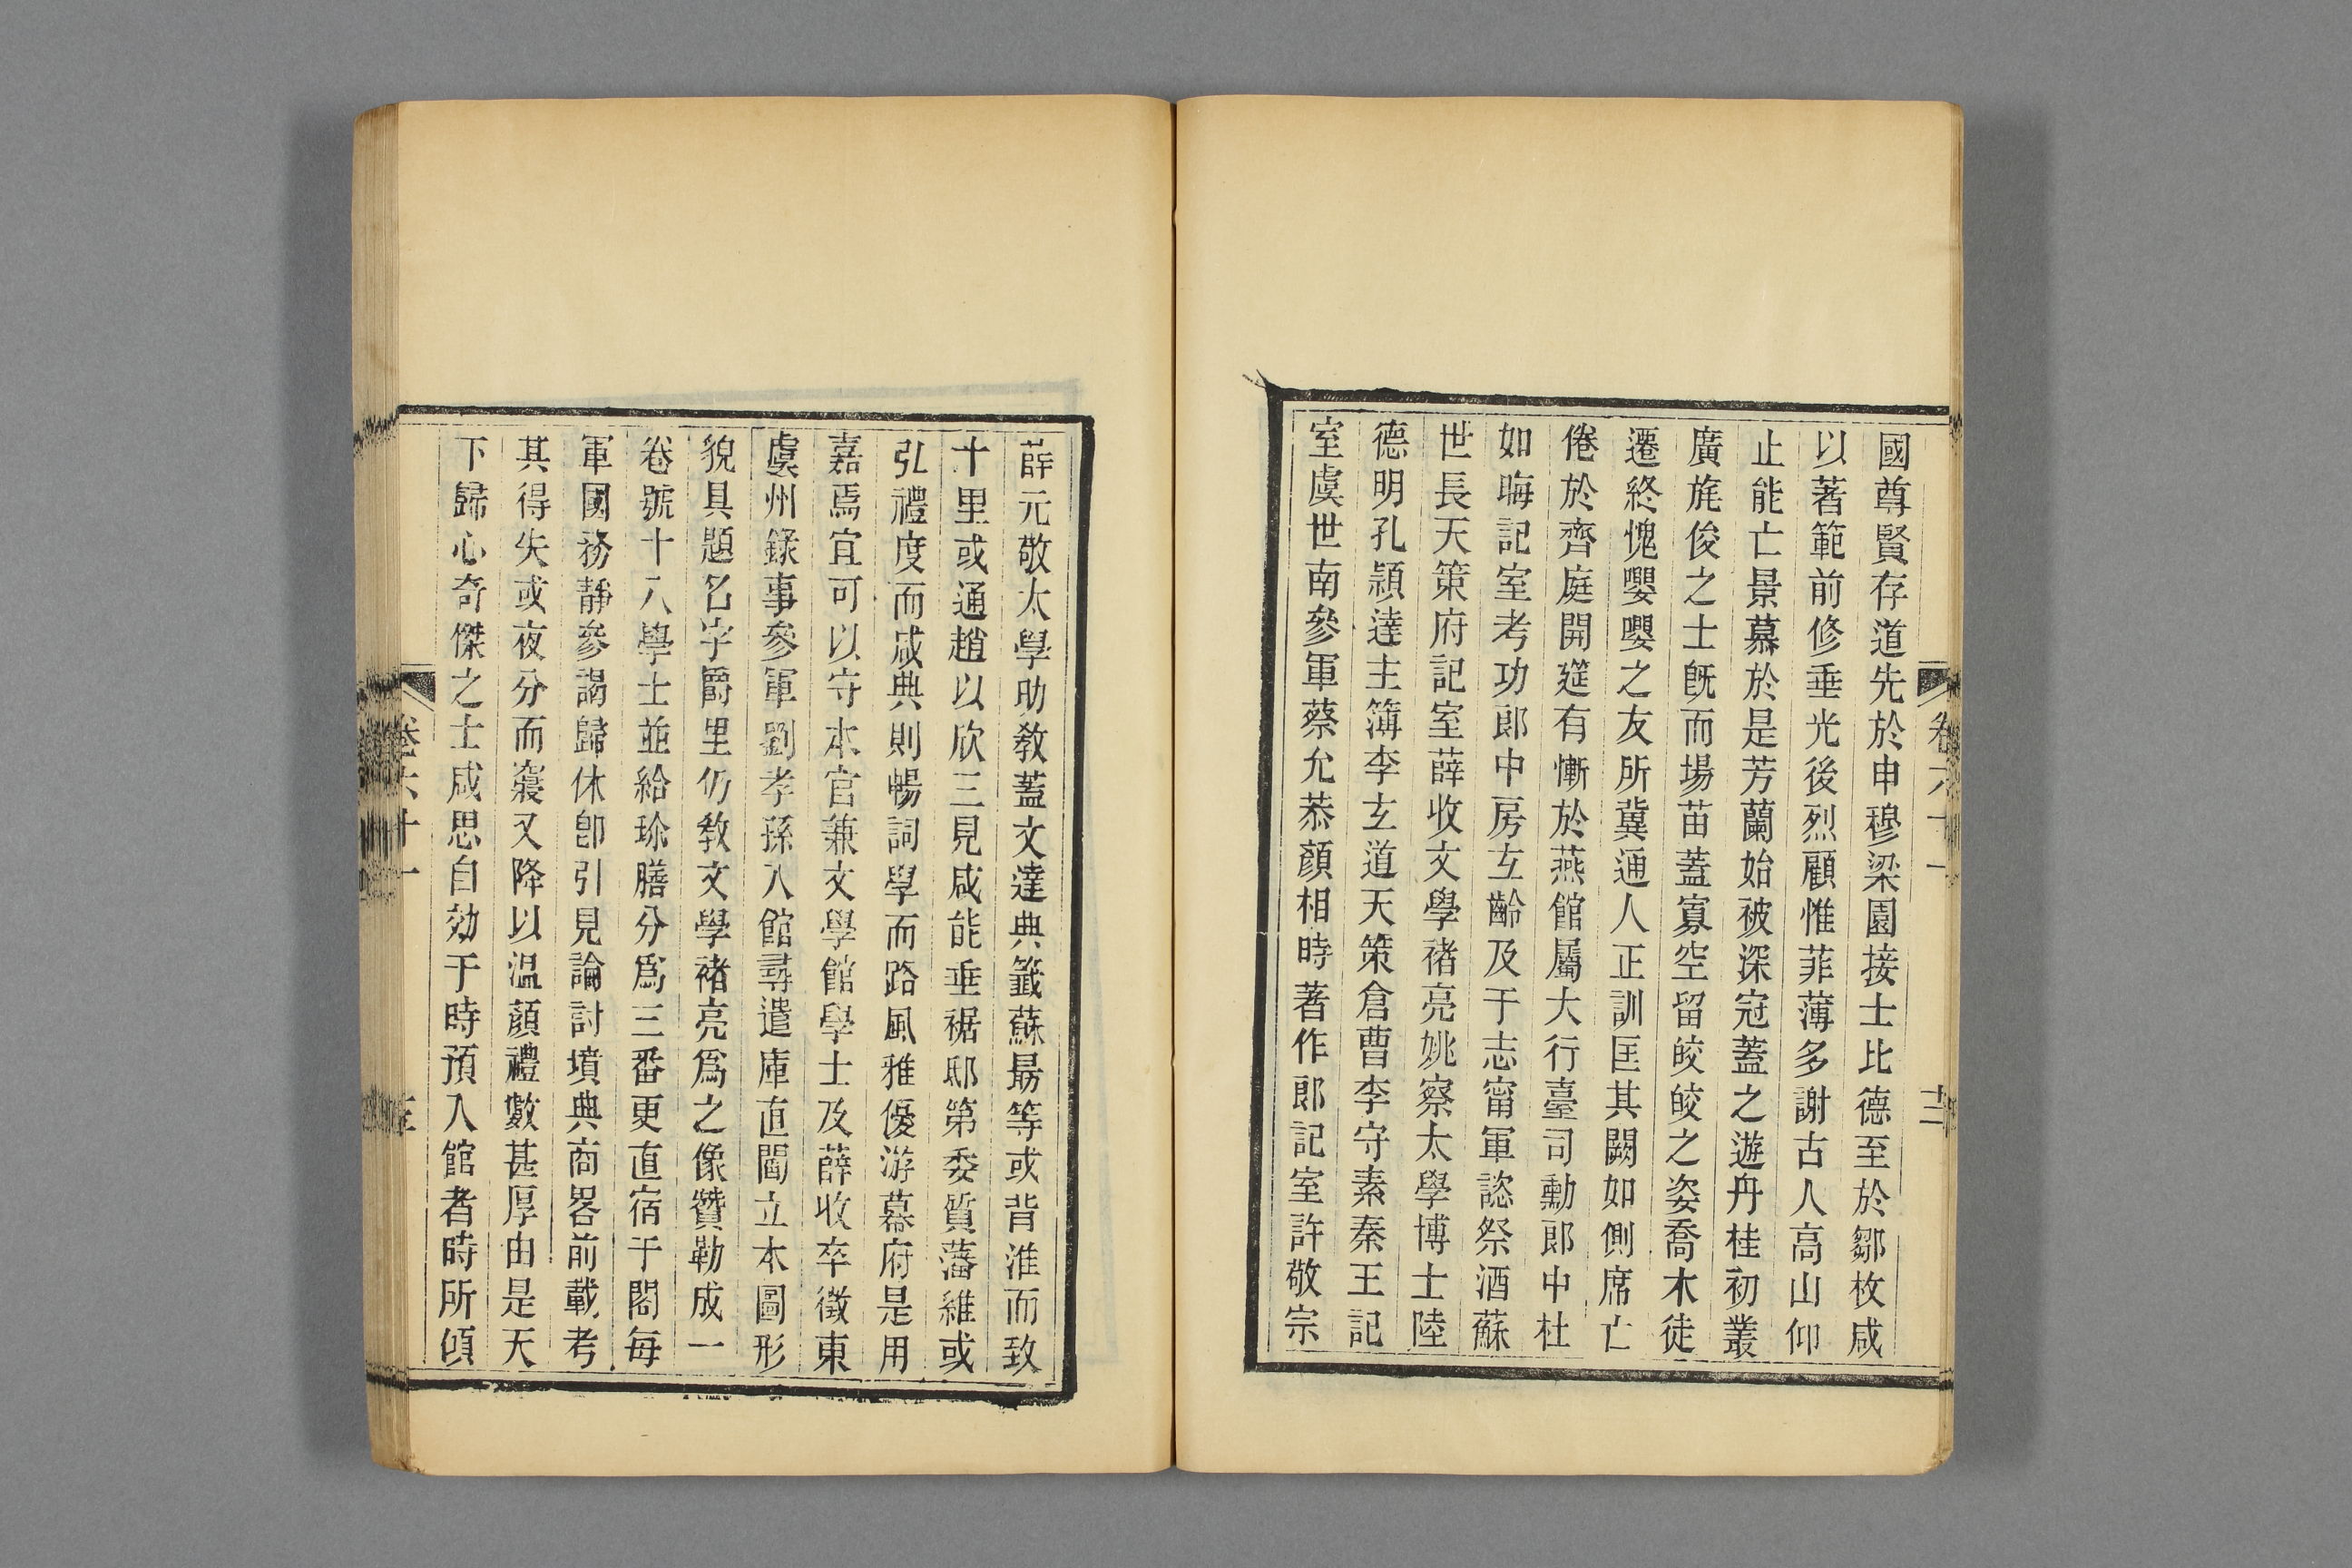 國尊賢存道先於申穆梁園接士比德至於鄒枚咸
以著範前修垂光後烈顧惟菲薄多謝古人高山仰
止能亡景慕於是芳蘭始被深冠蓋之遊丹桂初叢
廣旄俊之士既而場苗蓋寡空留皎皎之姿喬木徒
遷終愧嚶嚶之友所冀通人正訓匡其闕如側席亡
倦於齊庭開筵有慚於燕館屬大行臺司勳郎中杜
如晦記室考功郎中房玄齡及于志甯軍諮祭酒蘇
世長天策府記室薛收文學褚亮姚察太學博士陸
德明孔頴達主簿李玄道天策倉曹李守素秦王記
室虞世南參軍蔡允恭顏相時著作郎記室許敬宗
薛元敬太學助教蓋文達典籤蘇勗等或背淮而致
十里或通趙以欣三見咸能垂裾邸第委質藩維或
弘禮度而成典則暢詞學而路風雅優游幕府是用
嘉焉宜可以守本官兼文學館學士及薛收卒徵東
虞州錄事參軍劉孝孫入館尋遣庫直閻立本圖形
貌具題名字爵里仍教文學褚亮爲之像贊勒成一
卷號十八學士並給珍膳分爲三番更直宿于閣每
軍國務靜參謁歸休卽引見論討墳典商畧前載考
其得失或夜分而寢又降以温顏禮數甚厚由是天
下歸心奇傑之士咸思自効于時預入館者時所傾
卷六十一